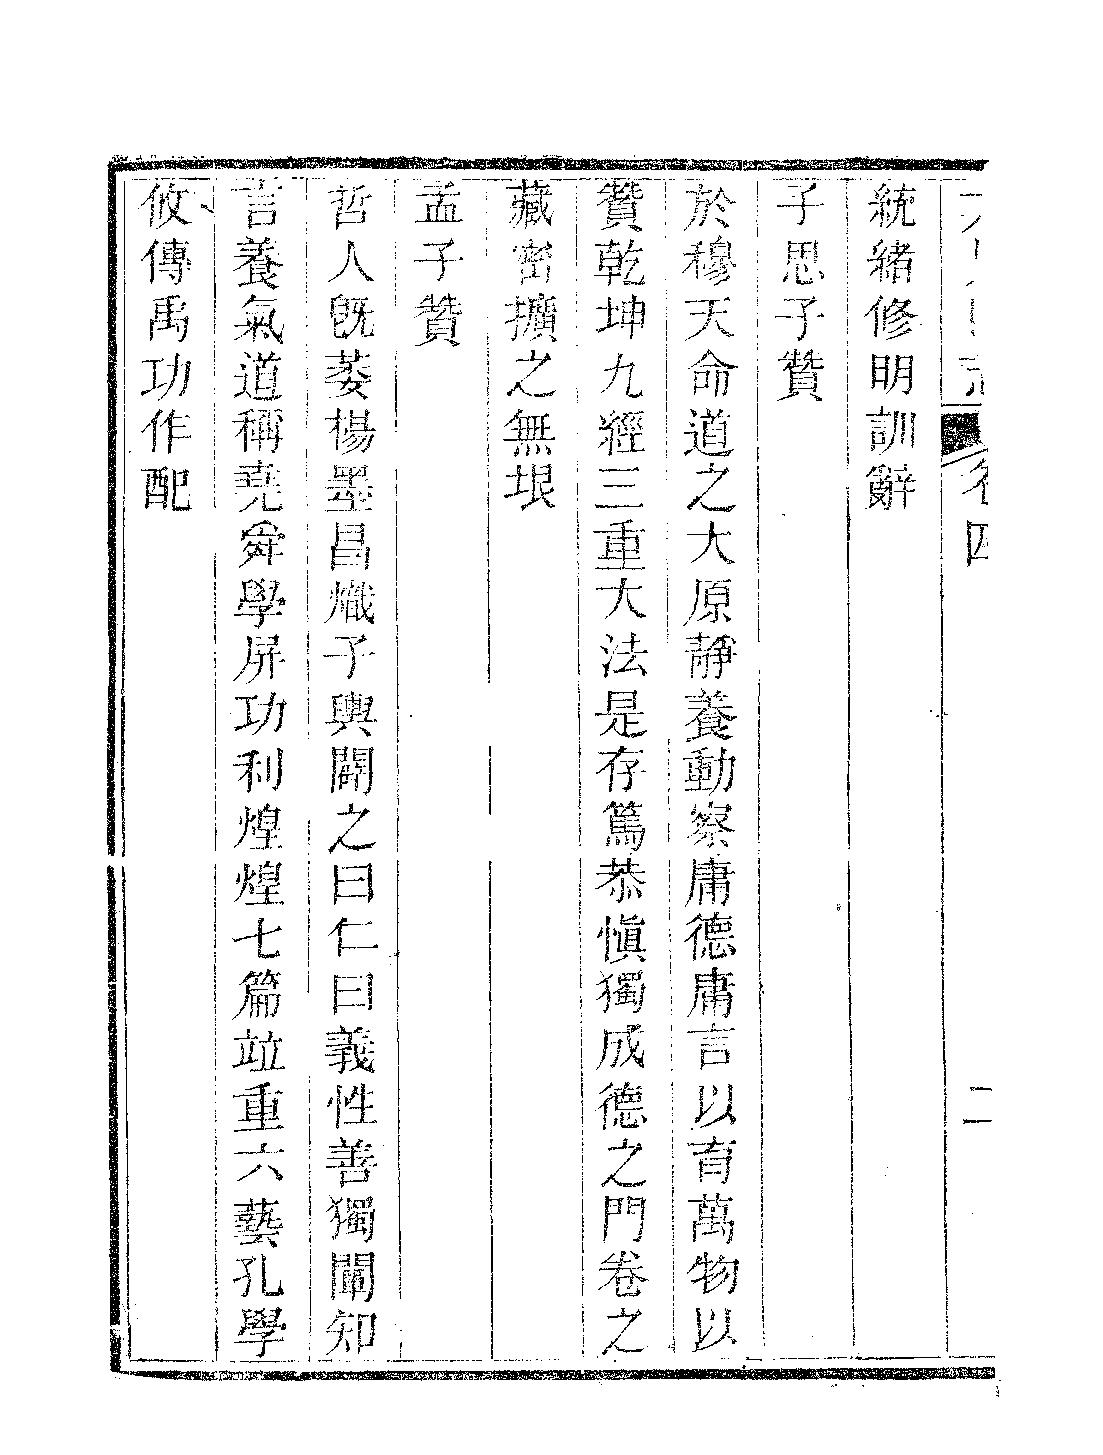 卷四
二
統緒修明訓辭
子思子贊
於穆天命道之大原靜養動察庸德庸言以育萬物以
贊乾坤九經三重大法是存篤恭愼獨成德之門卷之
藏密擴之無垠
孟子贊
哲人旣萎楊墨昌熾子輿闢之曰仁曰義性善獨闡知
言養氣道稱堯舜學屏功利煌煌七篇竝重六藝孔學
攸傳禹功作配